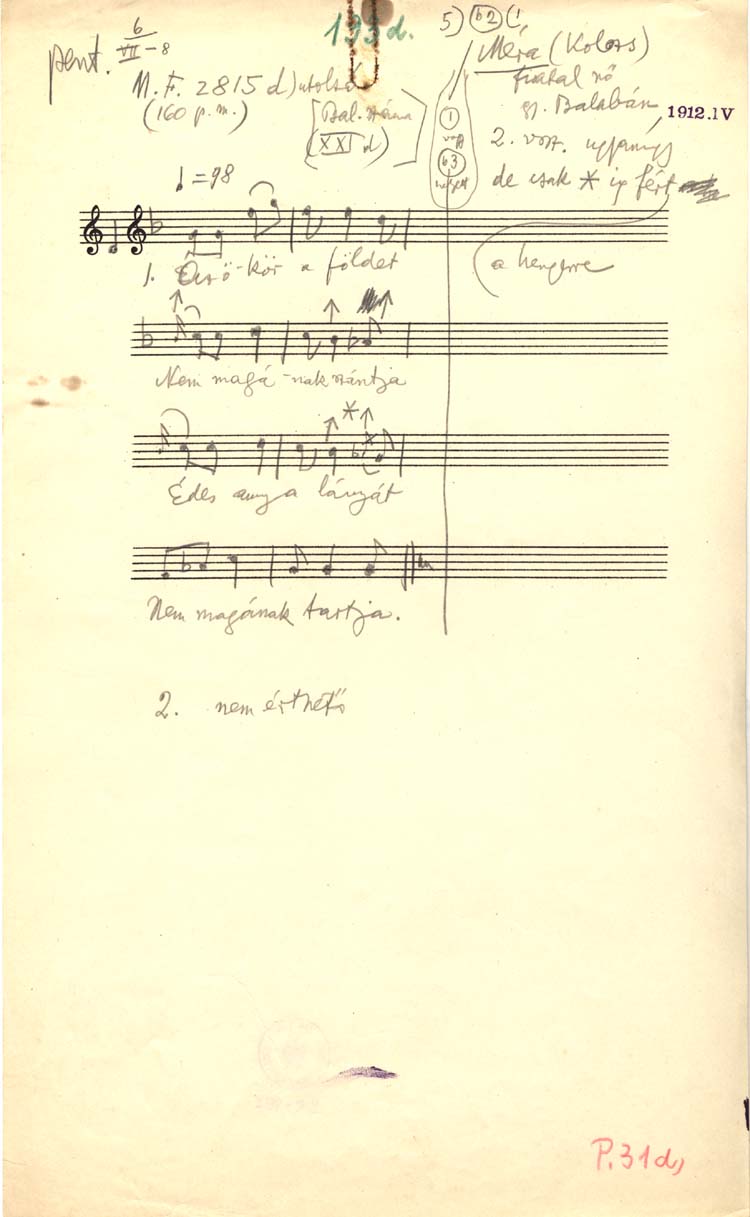 pent. 6
VII - 8
193d.
5) b2 (1
Méra (Kolozs)
fiatal nő
gy. Balabán, 1912.IV
M.F. 2815 d) utolsó
(160 p.m.)
[Bal. száma
(XXI d)]
1
vagy
b3
helyett
2. vsz. ugyanígy
de csak * ig fért
a hengerre
♩ = 98
1. Ökör a földet
Nem magá-nak szántja
Édes anya lányát
Nem magának tartja.
2. nem érthető
P.31d,